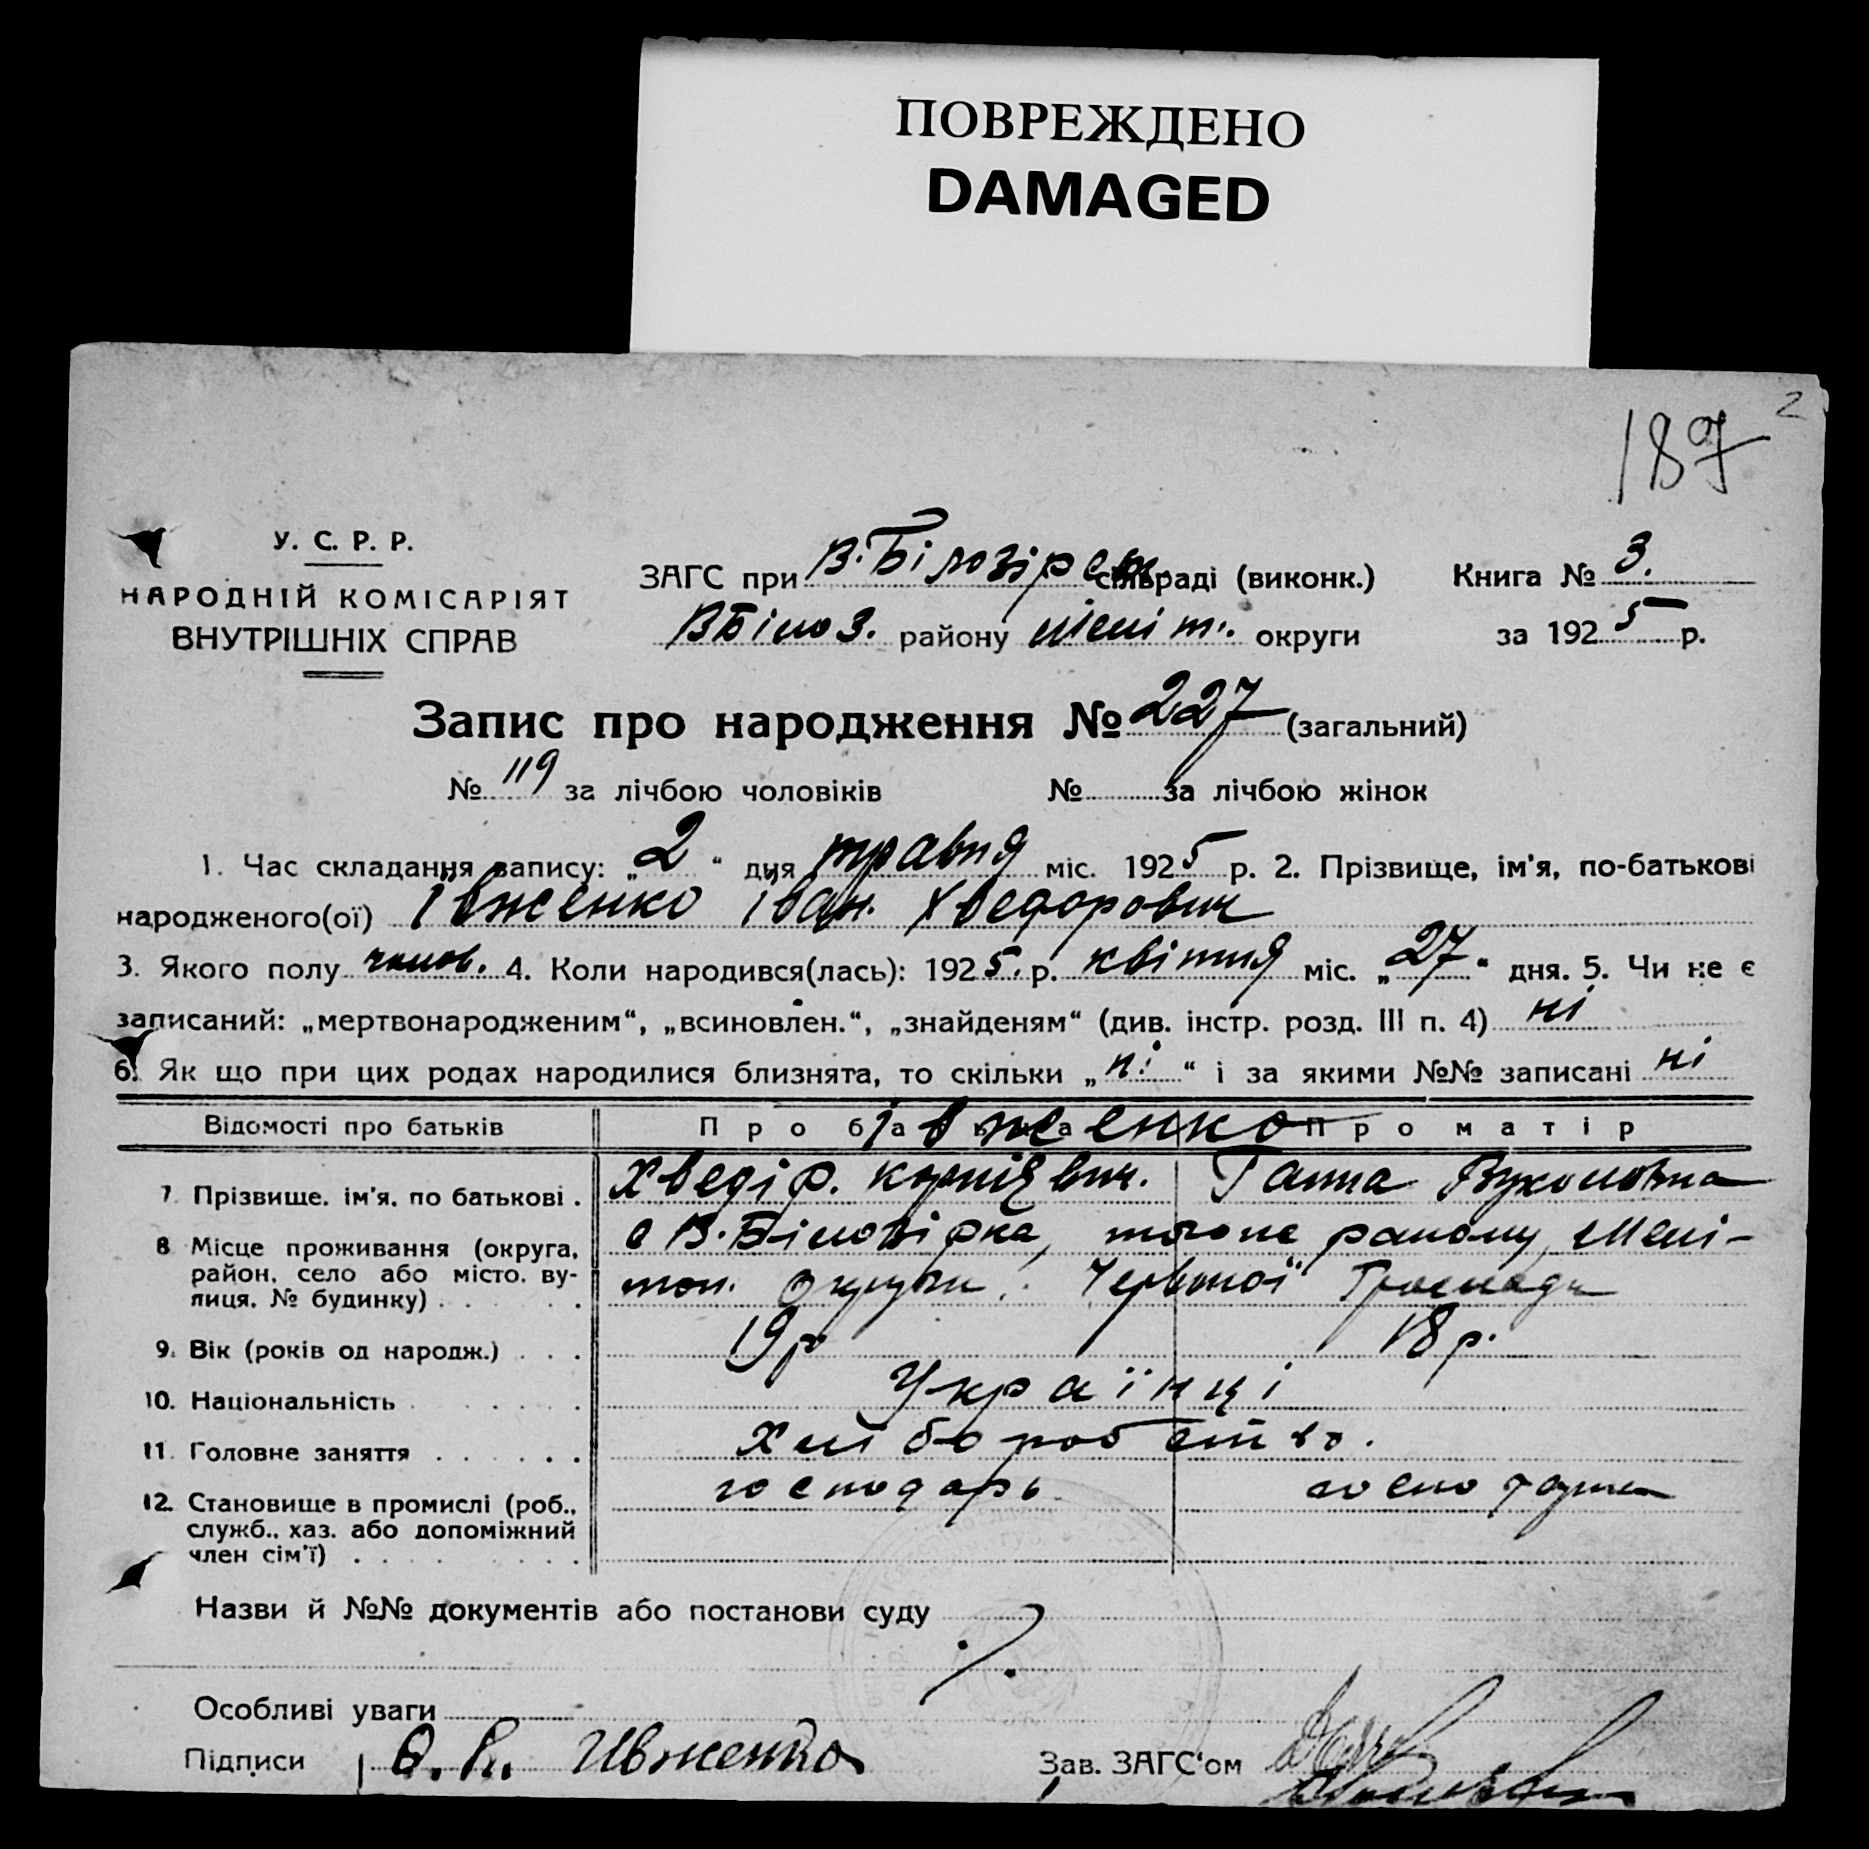 ПОВРЕЖДЕНО
DAMAGED
2
187
У. С. Р. Р.
НАРОДНІЙ КОМІСАРІЯТ
ВНУТРІШНІХ СПРАВ
ЗАГС при В. Білозірськ. сільраді (виконк.) Книга № 3.
ВБілоз. району округи за 1925 р.
Запис про народження № 227 (загальний)
№ 119 за лічбою чоловіків № за лічбою жінок
1. Час складання запису: „2“ дня травня міс. 1925 р. 2. Прізвище, ім'я, по-батькові
народженого(ої) Івженко Іван Хведорович
3. Якого полу чолов. 4. Коли народився(лась): 1925. р. квітня міс. „27“ дня. 5. Чи не є
записаний: „мертвонародженим“, „всиновлен.“, „знайденям“ (див. інстр. розд. III п. 4) ні
6. Як що при цих родах народилися близнята, то скільки „ні“ і за якими №№ записані ні
Відомості про батьків Про батька Про матір
Івженко
7. Прізвище, ім'я, по батькові . Хведір Ганна
8. Місце проживання (округа, с В. Білозірка, того же району, Мелі-
район, село або місто, ву- топ. округи. Червоної Громади
лиця, № будинку) . . . .
9. Вік (років од народж.) . . . 19 р 18 р.
10. Національність . . . . . . Українці
11. Головне заняття . . . . . . Хліборобство.
12. Становище в промислі (роб., господарь
служб., хаз. або допоміжний
член сім'ї) . . . . . . . .
Назви й №№ документів або постанови суду ./.
Особливі уваги
Підписи Ивженко Зав. ЗАГС'ом